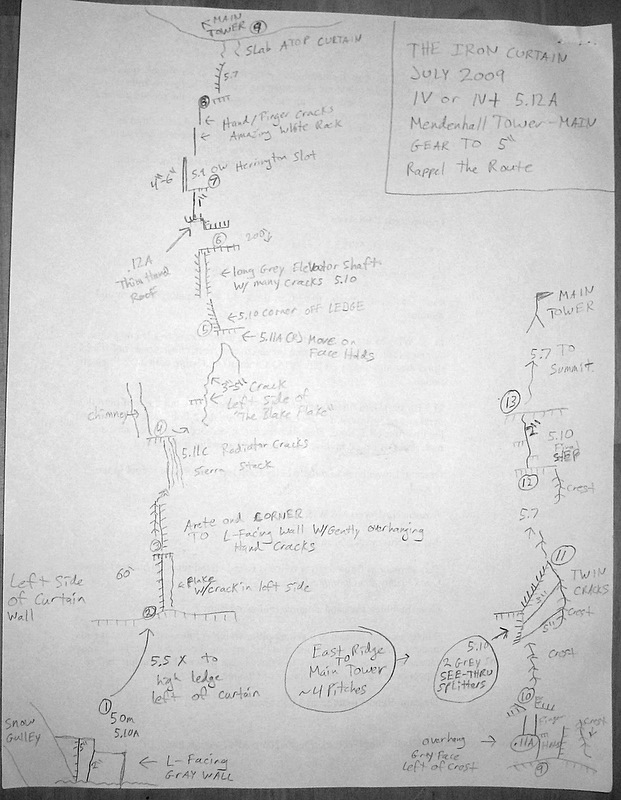 THE IRON CURTAIN
JULY 2009
IV or IV+ 5.12A
Mendenhall Tower-MAIN
GEAR TO 5"
Rappel the Route
MAIN
TOWER
9
Slab ATOP CURTAIN
5.7
8
Hand/Finger Cracks
Amazing White Rock
4"-6"
5.9 OW Herrington Slot
7
1"
.12A
Thin Hand
Roof
6
200'
long Grey Elevator Shaft
W/ many Cracks 5.10
5.10 CORNER OFF LEDGE
5
5.11A (R) MOVE on
Face Holds
3-5" Crack
Left Side of
"The Blake Flake"
chimney
4
5.11C Radiator Cracks
Sierra Stack
Arete and CORNER
TO L-Facing Wall W/Gently overhanging
Hand Cracks
3
60'
Flake
W/crack in left side
Left Side
of Curtain
Wall
2
5.5 X to
high ledge
left of curtain
1
50m
5.10A
SNOW
GULLEY
5"
2"
L-Facing
GRAY WALL
East Ridge
TO
Main Tower
~4 Pitches
MAIN
TOWER
5.7 TO
Summit
13
2"
5.10
Final
STEP
12
Crest
5.7
11
TWIN
CRACKS
5"
5"
Crest
5.10
2 Grey
SEE-THRU
Splitters
Crest
10
Finger
Crest
overhang
Grey Face
Left of Crest
.11A
HAND
9